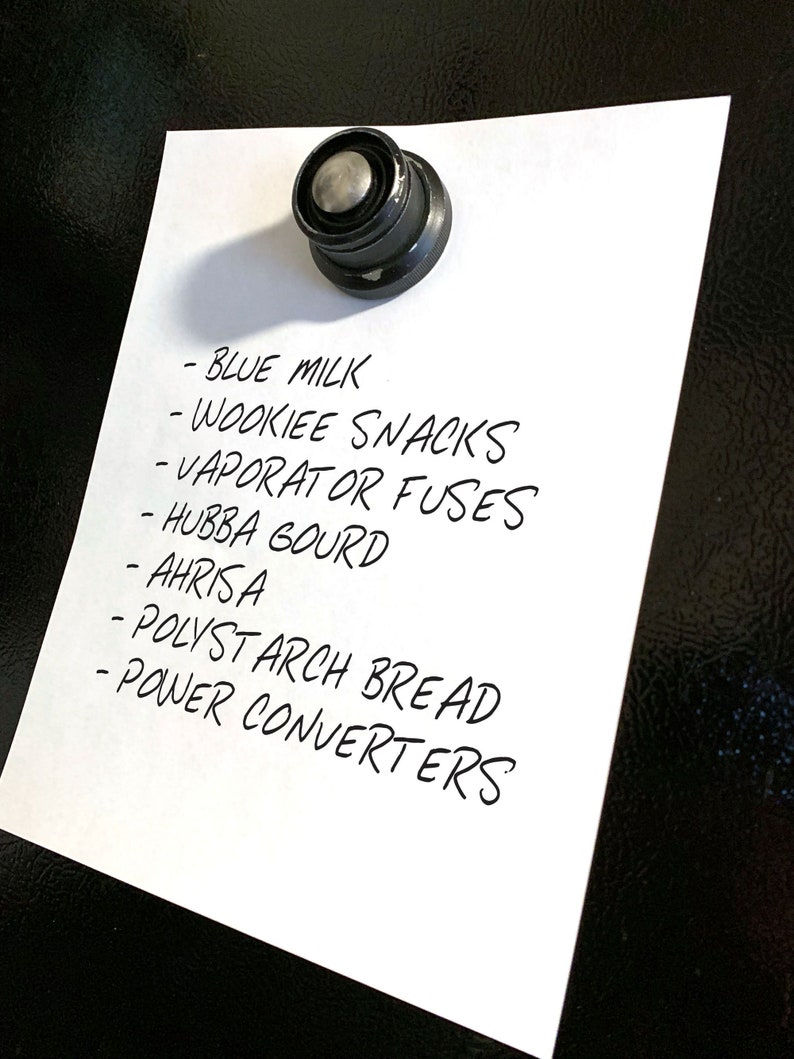 - BLUE MILK
- WOOKIEE SNACKS
- VAPORATOR FUSES
- HUBBA GOURD
- AHRISA
- POLYSTARCH BREAD
- POWER CONVERTERS